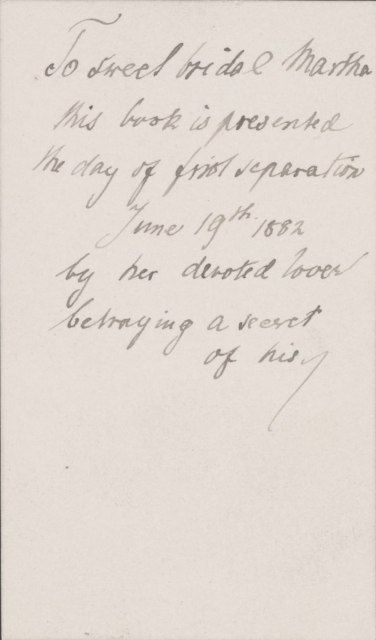 To sweet bridal Martha
this book is presented
the day of first separation
June 19th 1882
by her devoted lover
betraying a secret
of his,